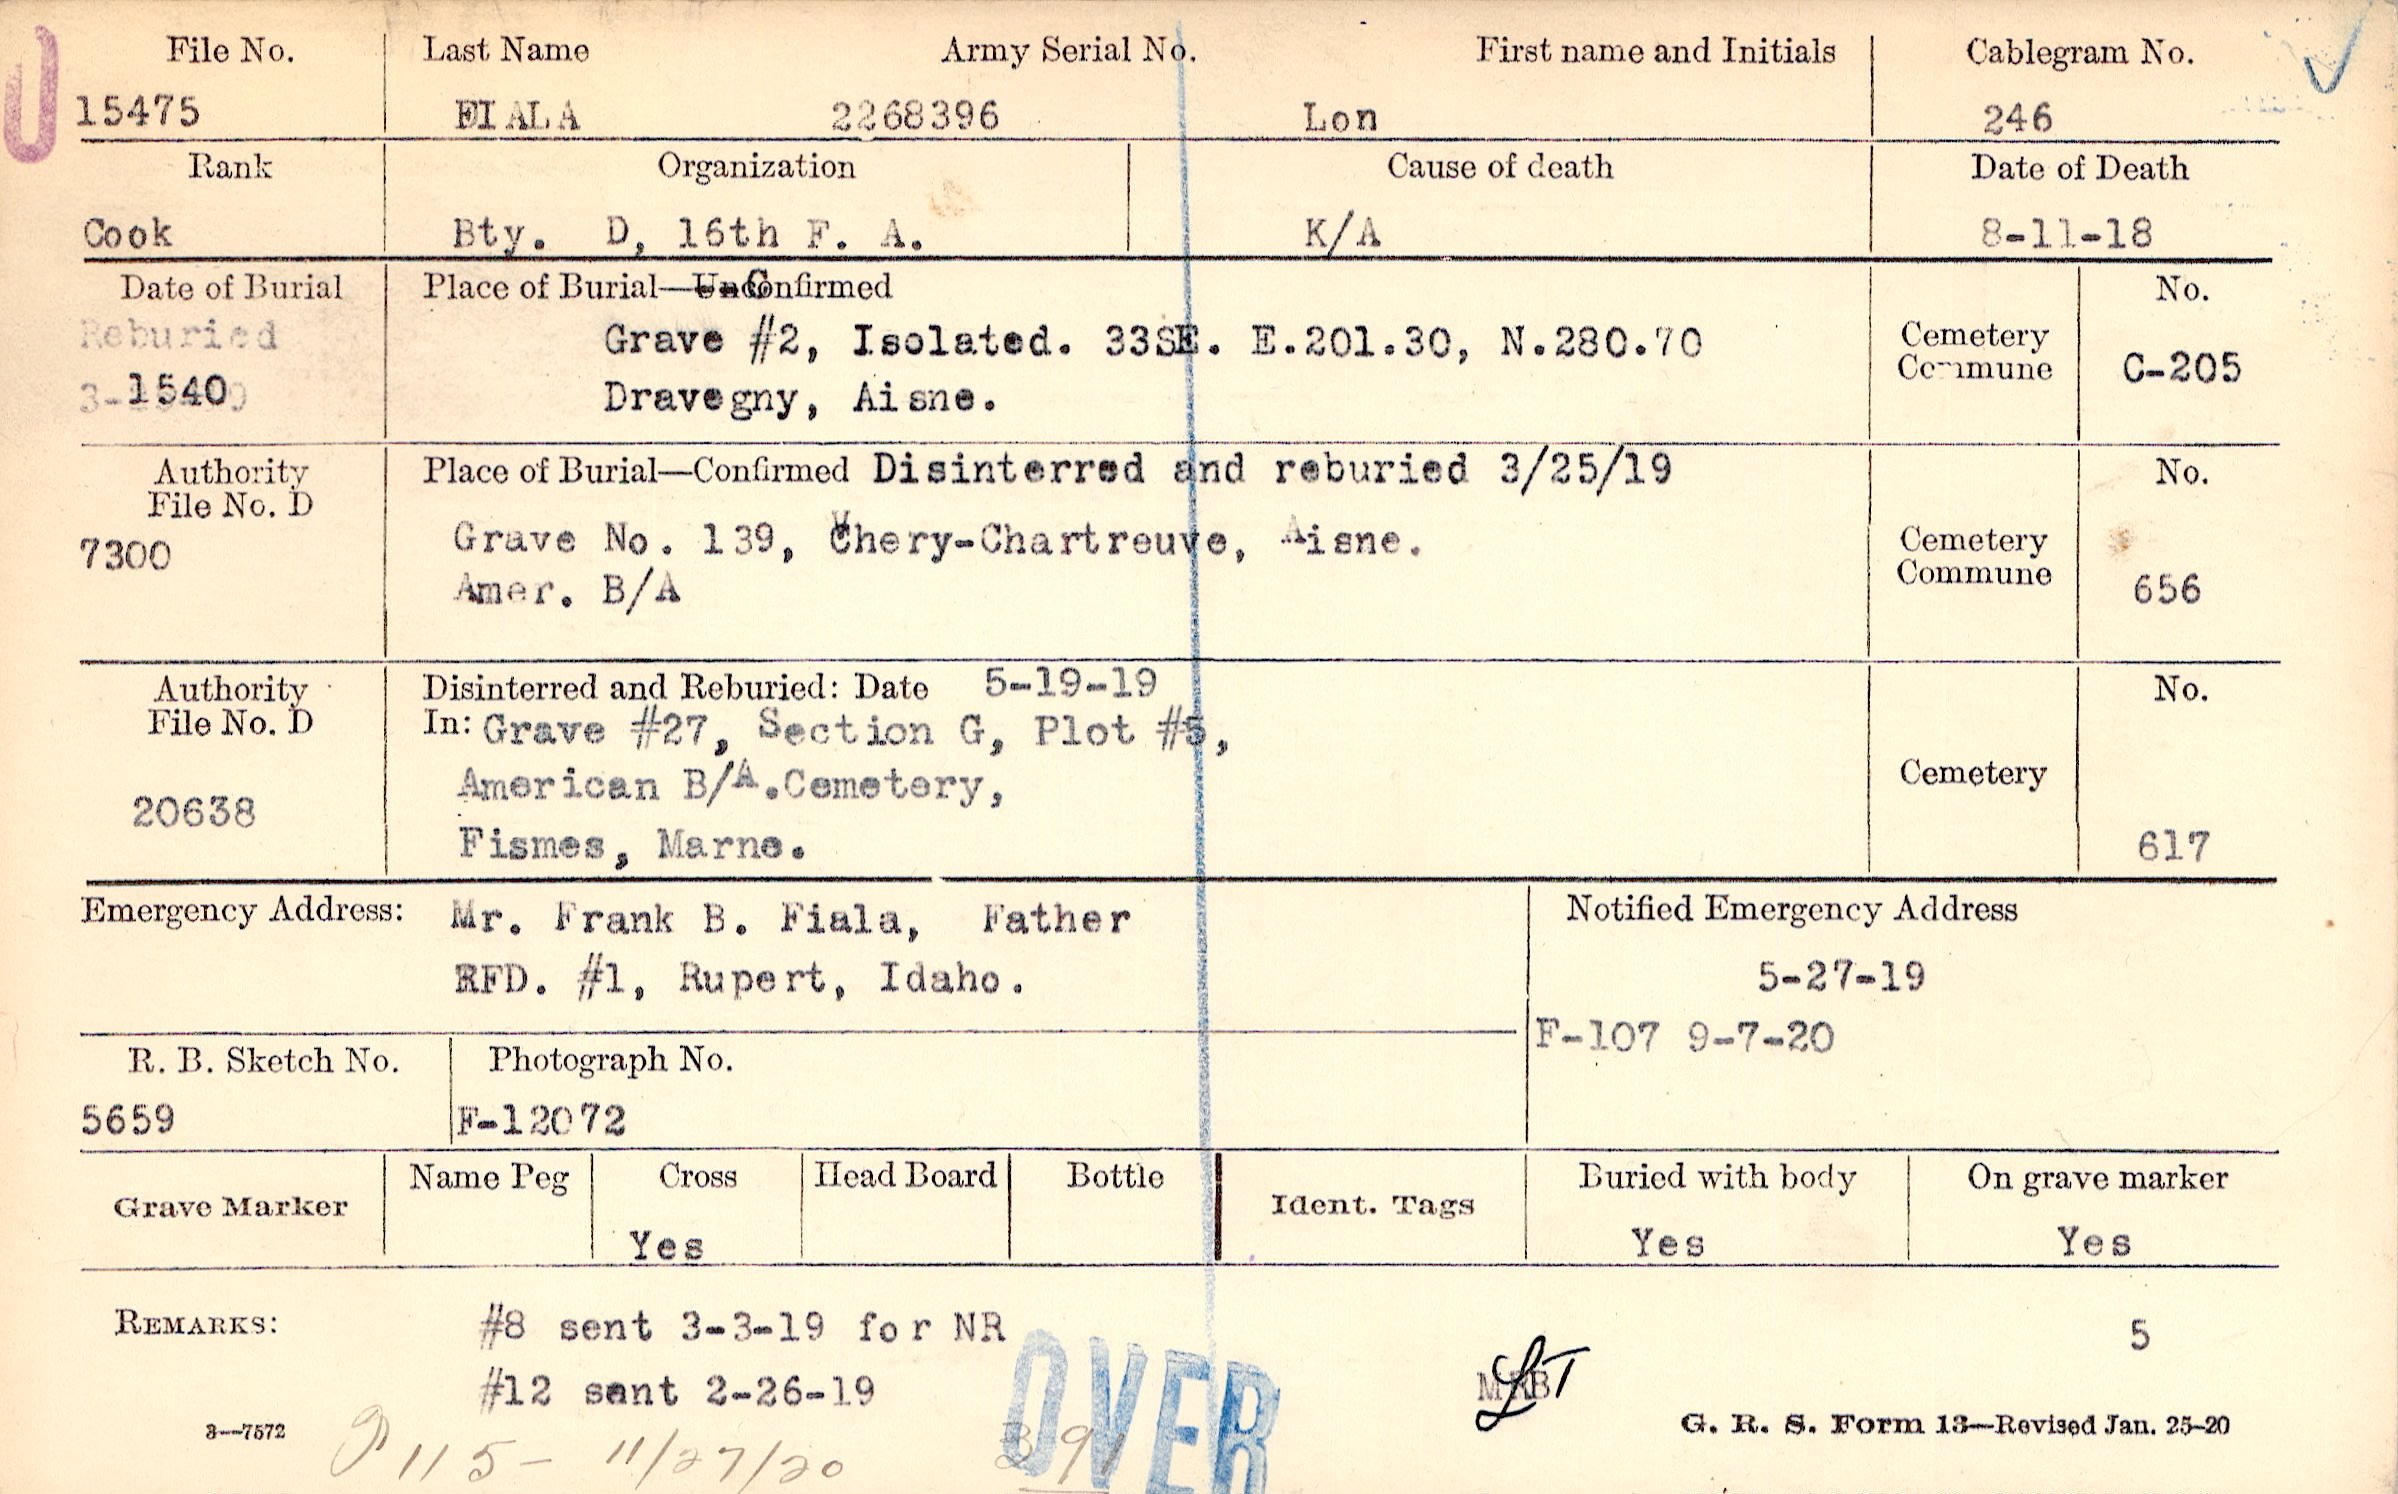 File No. Last Name Army Serial No. First name and Initials Cablegram No.
15475 FIALA 2268396 Lon 246
Rank Organization Cause of death Date of Death
Cook Bty. D, 16th F. A. K/A 8-11-18
Date of Burial Place of Burial—Confirmed No.
Reburied Grave #2, Isolated. 33SE. E.201.30, N.280.70 Cemetery
Commune C-205
1540 Dravegny, Aisne.
Authority Place of Burial—Confirmed Disinterred and reburied 3/25/19 No.
File No. D
7300 Grave No. 139, Chery-Chartreuve, Aisne. Cemetery
Amer. B/A Commune 656
Authority Disinterred and Reburied: Date 5-19-19 No.
File No. D In: Grave #27, Section G, Plot #5,
20638 American B/A.Cemetery, Cemetery
Fismes, Marne. 617
Emergency Address: Mr. Frank B. Fiala, Father Notified Emergency Address
RFD. #1, Rupert, Idaho. 5-27-19
F-107 9-7-20
R. B. Sketch No. Photograph No.
5659 F-12072
Grave Marker Name Peg Cross Head Board Bottle Ident. Tags Buried with body On grave marker
Yes Yes Yes
REMARKS: #8 sent 3-3-19 for NR 5
#12 sent 2-26-19
OVER
3—7572 G. R. S. Form 13—Revised Jan. 25-20
115- 11/27/20